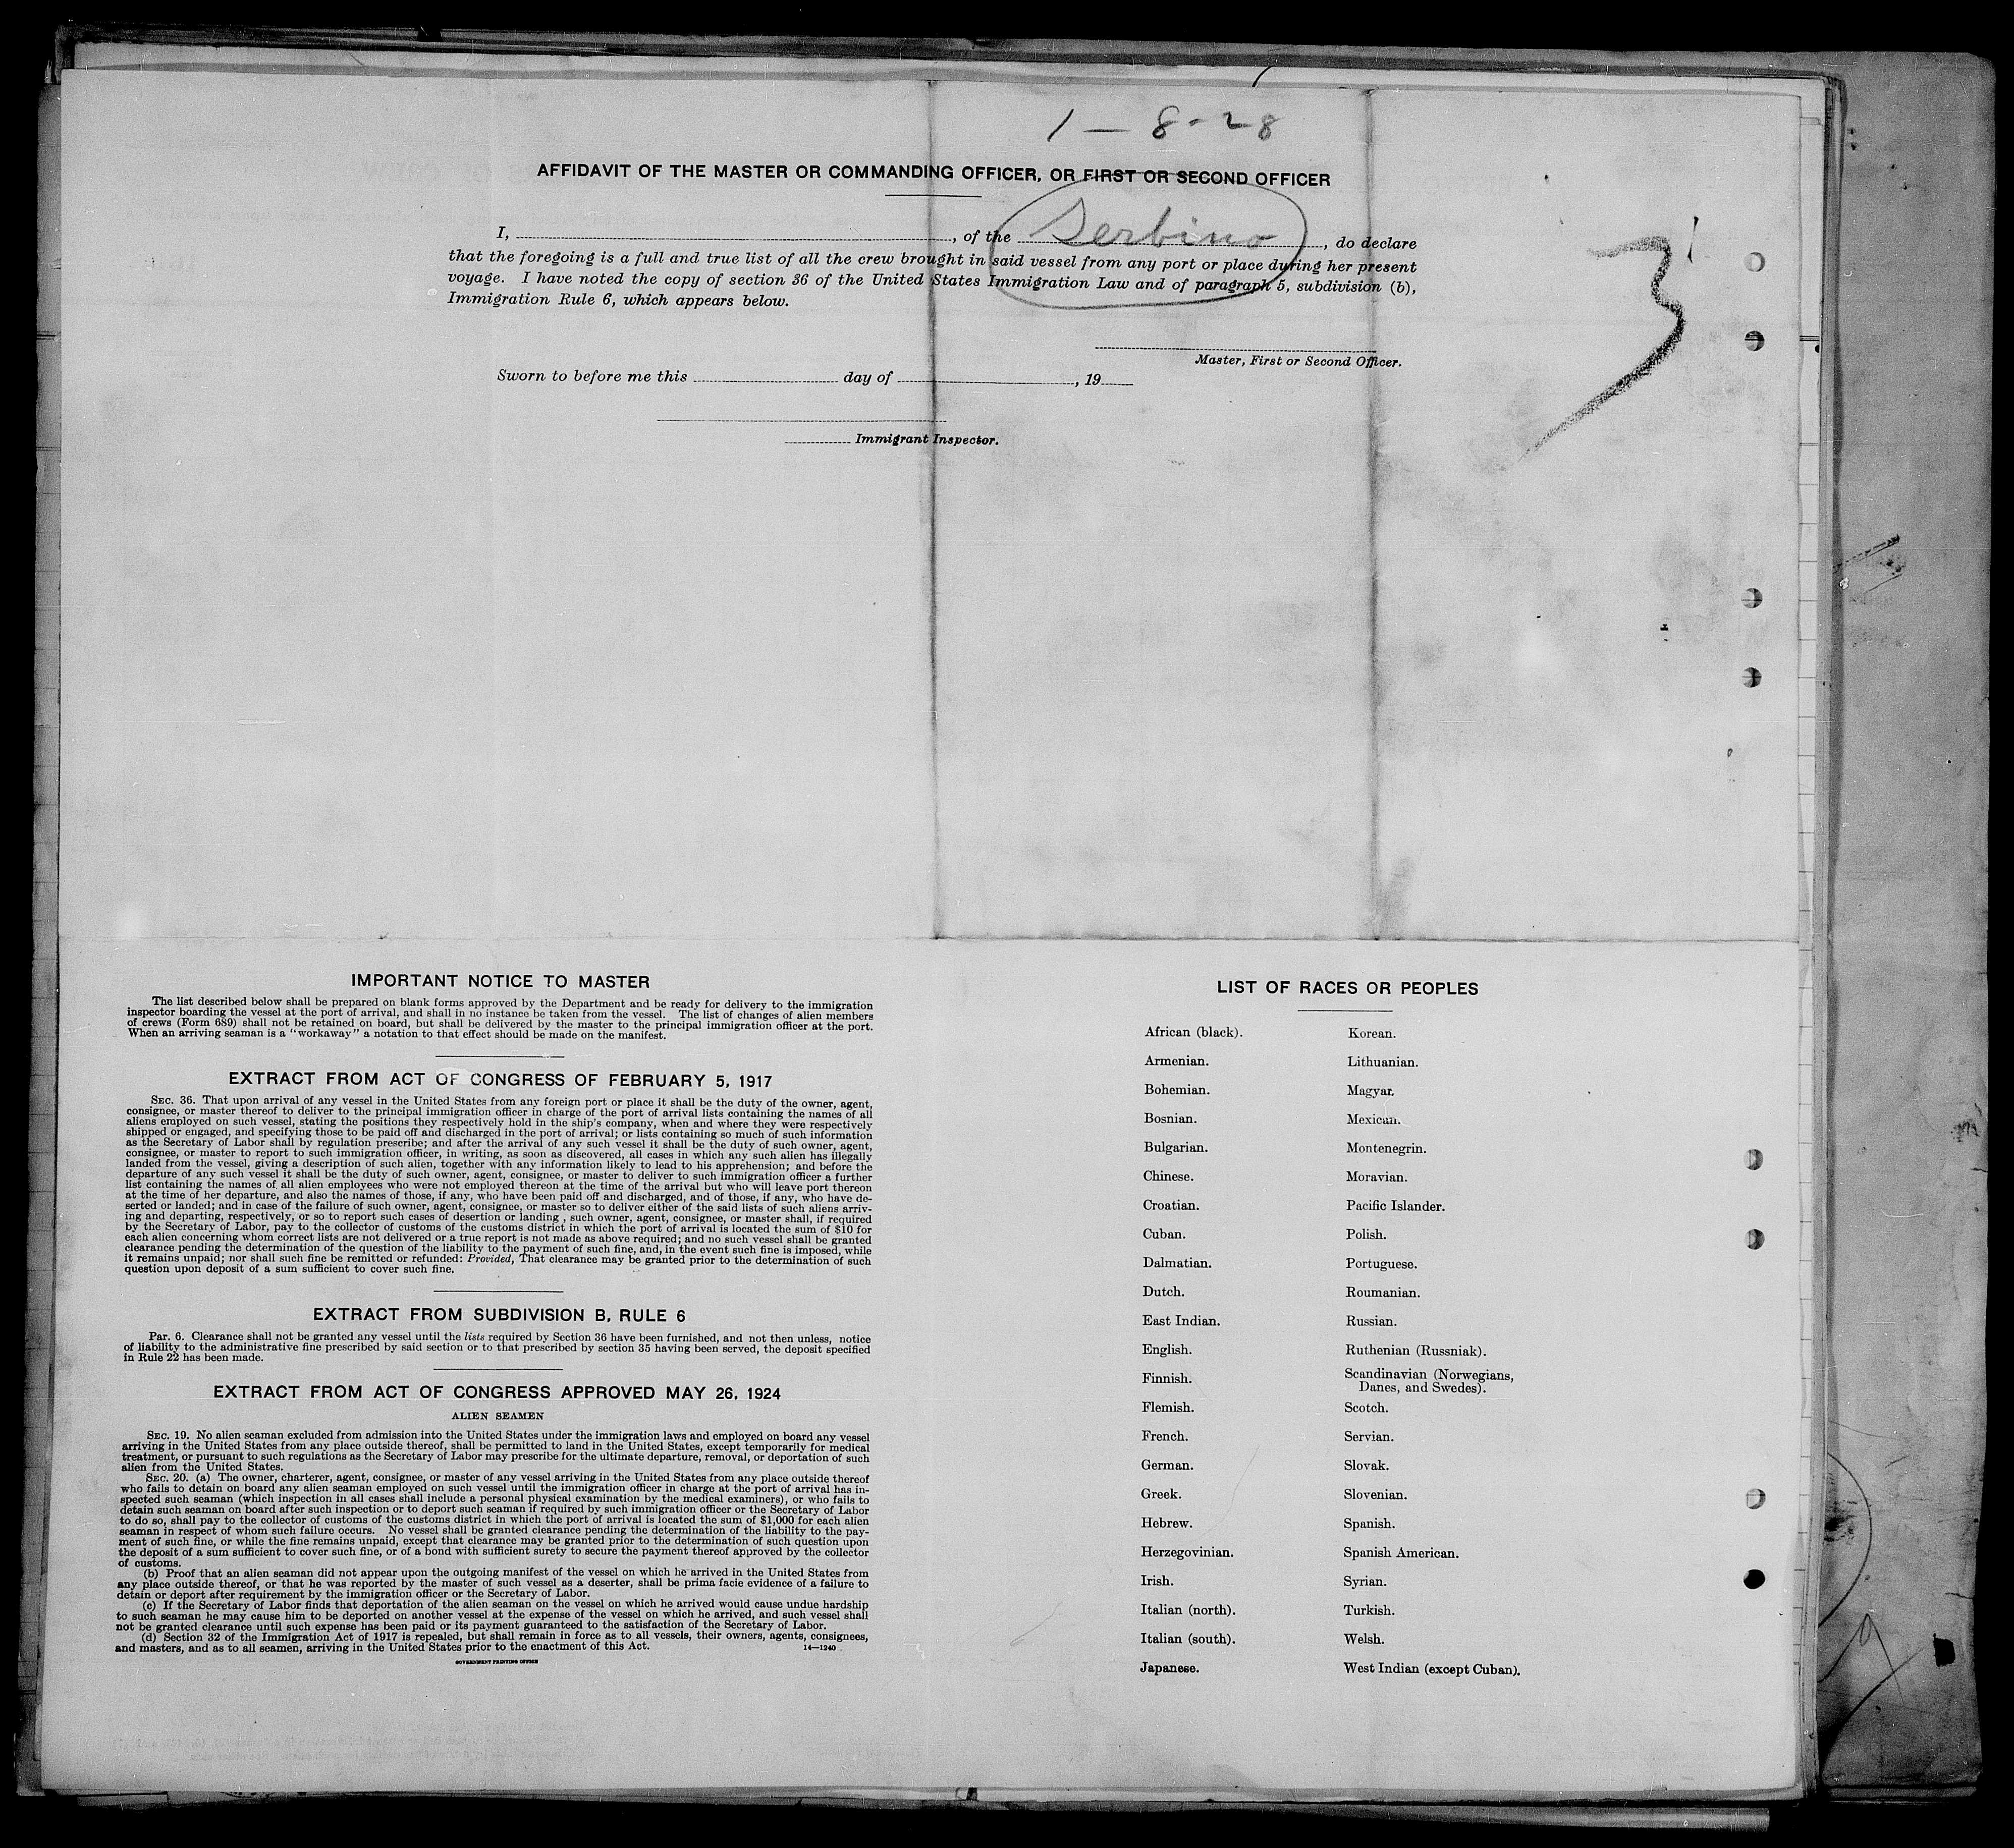 1 - 8 - 28
AFFIDAVIT OF THE MASTER OR COMMANDING OFFICER, OR FIRST OR SECOND OFFICER
I, , of the Serbino , do declare
that the foregoing is a full and true list of all the crew brought in said vessel from any port or place during her present
voyage. I have noted the copy of section 36 of the United States Immigration Law and of paragraph 5, subdivision (b),
Immigration Rule 6, which appears below.
3
Master, First or Second Officer.
Sworn to before me this day of , 19
Immigrant Inspector.
IMPORTANT NOTICE TO MASTER
The list described below shall be prepared on blank forms approved by the Department and be ready for delivery to the immigration
inspector boarding the vessel at the port of arrival, and shall in no instance be taken from the vessel. The list of changes of alien members
of crews (Form 689) shall not be retained on board, but shall be delivered by the master to the principal immigration officer at the port.
When an arriving seaman is a "workaway" a notation to that effect should be made on the manifest.
EXTRACT FROM ACT OF CONGRESS OF FEBRUARY 5, 1917
SEC. 36. That upon arrival of any vessel in the United States from any foreign port or place it shall be the duty of the owner, agent,
consignee, or master thereof to deliver to the principal immigration officer in charge of the port of arrival lists containing the names of all
aliens employed on such vessel, stating the positions they respectively hold in the ship's company, when and where they were respectively
shipped or engaged, and specifying those to be paid off and discharged in the port of arrival; or lists containing so much of such information
as the Secretary of Labor shall by regulation prescribe; and after the arrival of any such vessel it shall be the duty of such owner, agent,
consignee, or master to report to such immigration officer, in writing, as soon as discovered, all cases in which any such alien has illegally
landed from the vessel, giving a description of such alien, together with any information likely to lead to his apprehension; and before the
departure of any such vessel it shall be the duty of such owner, agent, consignee, or master to deliver to such immigration officer a further
list containing the names of all alien employees who were not employed thereon at the time of the arrival but who will leave port thereon
at the time of her departure, and also the names of those, if any, who have been paid off and discharged, and of those, if any, who have de-
serted or landed; and in case of the failure of such owner, agent, consignee, or master so to deliver either of the said lists of such aliens arriv-
ing and departing, respectively, or so to report such cases of desertion or landing , such owner, agent, consignee, or master shall, if required
by the Secretary of Labor, pay to the collector of customs of the customs district in which the port of arrival is located the sum of $10 for
each alien concerning whom correct lists are not delivered or a true report is not made as above required; and no such vessel shall be granted
clearance pending the determination of the question of the liability to the payment of such fine, and, in the event such fine is imposed, while
it remains unpaid; nor shall such fine be remitted or refunded: Provided, That clearance may be granted prior to the determination of such
question upon deposit of a sum sufficient to cover such fine.
EXTRACT FROM SUBDIVISION B, RULE 6
Par. 6. Clearance shall not be granted any vessel until the lists required by Section 36 have been furnished, and not then unless, notice
of liability to the administrative fine prescribed by said section or to that prescribed by section 35 having been served, the deposit specified
in Rule 22 has been made.
EXTRACT FROM ACT OF CONGRESS APPROVED MAY 26, 1924
ALIEN SEAMEN
SEC. 19. No alien seaman excluded from admission into the United States under the immigration laws and employed on board any vessel
arriving in the United States from any place outside thereof, shall be permitted to land in the United States, except temporarily for medical
treatment, or pursuant to such regulations as the Secretary of Labor may prescribe for the ultimate departure, removal, or deportation of such
alien from the United States.
SEC. 20. (a) The owner, charterer, agent, consignee, or master of any vessel arriving in the United States from any place outside thereof
who fails to detain on board any alien seaman employed on such vessel until the immigration officer in charge at the port of arrival has in-
spected such seaman (which inspection in all cases shall include a personal physical examination by the medical examiners), or who fails to
detain such seaman on board after such inspection or to deport such seaman if required by such immigration officer or the Secretary of Labor
to do so, shall pay to the collector of customs of the customs district in which the port of arrival is located the sum of $1,000 for each alien
seaman in respect of whom such failure occurs. No vessel shall be granted clearance pending the determination of the liability to the pay-
ment of such fine, or while the fine remains unpaid, except that clearance may be granted prior to the determination of such question upon
the deposit of a sum sufficient to cover such fine, or of a bond with sufficient surety to secure the payment thereof approved by the collector
of customs.
(b) Proof that an alien seaman did not appear upon the outgoing manifest of the vessel on which he arrived in the United States from
any place outside thereof, or that he was reported by the master of such vessel as a deserter, shall be prima facie evidence of a failure to
detain or deport after requirement by the immigration officer or the Secretary of Labor.
(c) If the Secretary of Labor finds that deportation of the alien seaman on the vessel on which he arrived would cause undue hardship
to such seaman he may cause him to be deported on another vessel at the expense of the vessel on which he arrived, and such vessel shall
not be granted clearance until such expense has been paid or its payment guaranteed to the satisfaction of the Secretary of Labor.
(d) Section 32 of the Immigration Act of 1917 is repealed, but shall remain in force as to all vessels, their owners, agents, consignees,
and masters, and as to all seamen, arriving in the United States prior to the enactment of this Act. 14—1240
GOVERNMENT PRINTING OFFICE
LIST OF RACES OR PEOPLES
African (black).
Armenian.
Bohemian.
Bosnian.
Bulgarian.
Chinese.
Croatian.
Cuban.
Dalmatian.
Dutch.
East Indian.
English.
Finnish.
Flemish.
French.
German.
Greek.
Hebrew.
Herzegovinian.
Irish.
Italian (north).
Italian (south).
Japanese.
Korean.
Lithuanian.
Magyar.
Mexican.
Montenegrin.
Moravian.
Pacific Islander.
Polish.
Portuguese.
Roumanian.
Russian.
Ruthenian (Russniak).
Scandinavian (Norwegians,
Danes, and Swedes).
Scotch.
Servian.
Slovak.
Slovenian.
Spanish.
Spanish American.
Syrian.
Turkish.
Welsh.
West Indian (except Cuban).